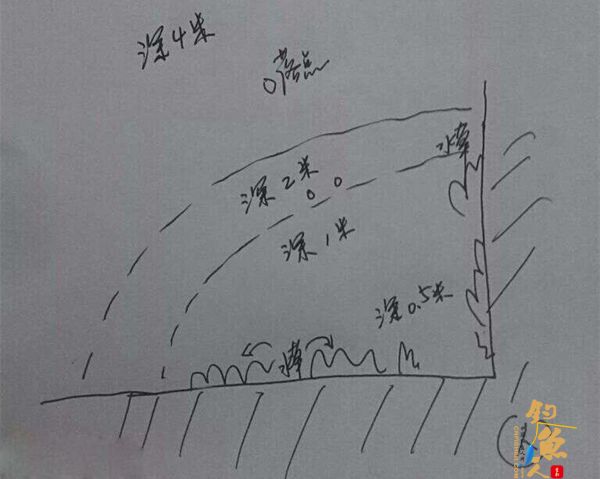 深4米
落点
水草
深2米
深1米
深0.5米
水草
钓鱼人